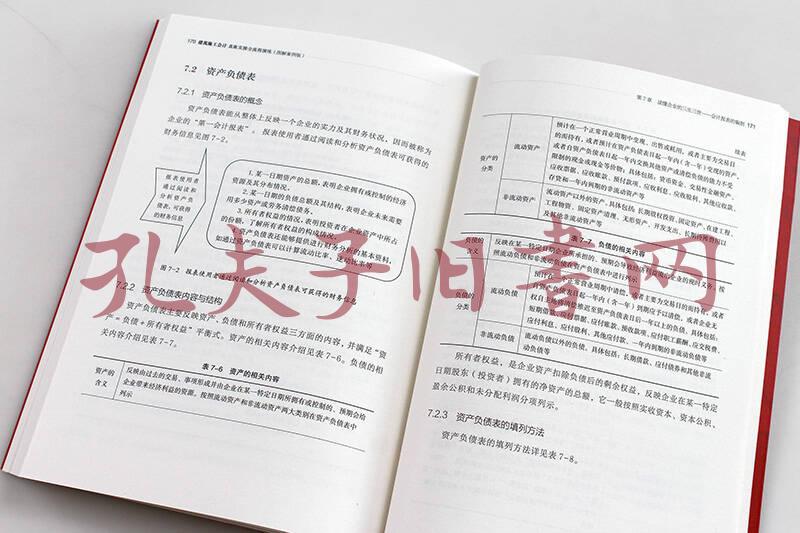 170 建筑施工会计 真账实操全流程演练（图解案例版）
7.2 资产负债表
7.2.1 资产负债表的概念
资产负债表能从整体上反映一个企业的实力及其财务状况，因而被称为
企业的“第一会计报表”。报表使用者通过阅读和分析资产负债表可获得的
财务信息见图 7-2。
报表使用者
通过阅读和
分析资产负
债表，可获得
的财务信息
1.某一日期资产的总额，表明企业拥有或控制的经济
资源及其分布情况。
2.某一日期的负债总额及其结构，表明企业未来需要
用多少资产或劳务清偿债务。
3.所有者权益的情况，表明投资者在企业资产中所占
的份额，了解所有者权益的构成情况。
资产负债表还能够提供进行财务分析的基本资料，
如通过资产负债表可以计算流动比率、速动比率等
图 7-2 报表使用者通过阅读和分析资产负债表可获得的财务信息
7.2.2 资产负债表内容与结构
资产负债表主要反映资产、负债和所有者权益三方面的内容，并满足“资
产=负债+所有者权益”平衡式。资产的相关内容介绍见表 7-6。负债的相
关内容介绍见表 7-7。
表 7-6 资产的相关内容
资产的
含义
反映由过去的交易、事项形成并由企业在某一特定日期所拥有或控制的、预期会给
企业带来经济利益的资源。按照流动资产和非流动资产两大类别在资产负债表中
列示
第 7 章 读懂企业的三张三世——会计报表的编制 171
续表
资产的
分类
流动资产
预计在一个正常营业周期中变现、出售或耗用，或者主要为交易目
的而持有，或者预计在资产负债表日起一年内（含一年）变现的资产，
或者自资产负债表日起一年内交换其他资产或清偿负债的能力不受
限制的现金或现金等价物；具体包括：货币资金、交易性金融资产、
应收票据、应收账款、预付款项、应收利息、应收股利、其他应收款、
存货和一年内到期的非流动资产等
非流动资产
流动资产以外的资产，具体包括：长期股权投资、固定资产、在建工程、
工程物资、固定资产清理、无形资产、开发支出、长期待摊费用以
及其他非流动资产等
表 7-7 负债的相关内容
负债的
含义
负债的
分类
流动负债
非流动负债
流动负债以外的负债，具体包括：长期借款、应付债券和其他非流
动负债等
所有者权益，是企业资产扣除负债后的剩余权益，反映企业在某一特定
日期股东（投资者）拥有的净资产的总额，它一般按照实收资本、资本公积、
盈余公积和未分配利润分项列示。
7.2.3 资产负债表的填列方法
资产负债表的填列方法详见表 7-8。
孔夫子旧书网